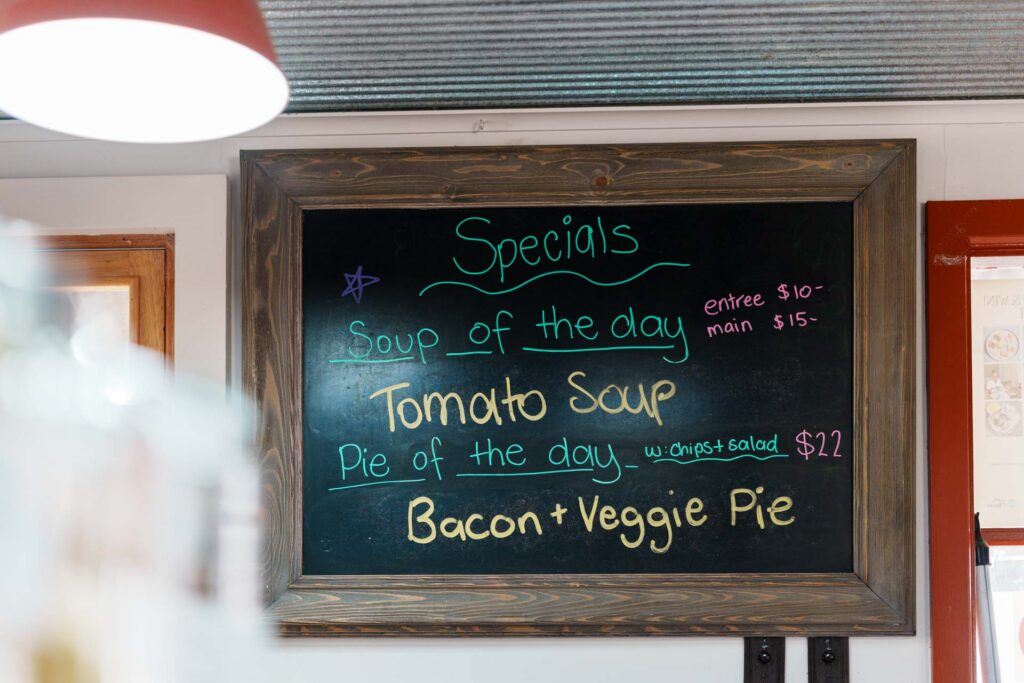 Specials
Soup of the day
entree $10-
main $15-
Tomato Soup
Pie of the day - w: chips + salad $22
Bacon + Veggie Pie